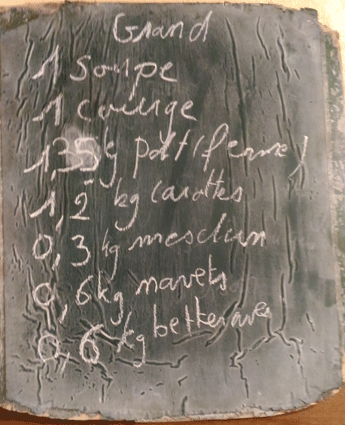 Grand
1 Soupe
1 courge
1,35 kg pdt (ferme)
1,2 kg carottes
0,3 kg mesclun
0,6 kg navets
0,6 kg betterave